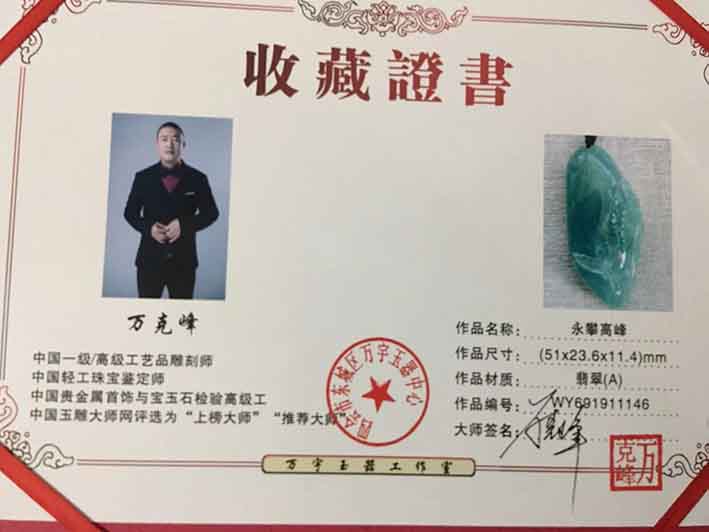 收藏證書
万克峰
中国一级/高级工艺品雕刻师
中国轻工珠宝鉴定师
中国贵金属首饰与宝玉石检验高级工
中国玉雕大师网评选为“上榜大师” “推荐大师”
作品名称: 永攀高峰
作品尺寸: (51x23.6x11.4)mm
作品材质: 翡翠(A)
作品编号: WY691911146
大师签名:
四会市东城区万宇玉器中心
万克峰
万宇玉器工作室